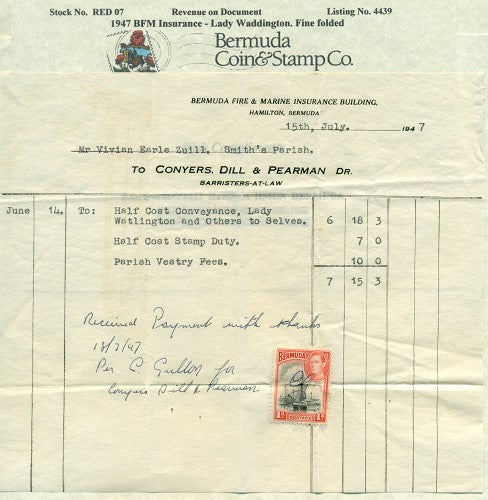 Stock No. RED 07 Revenue on Document Listing No. 4439
1947 BFM Insurance - Lady Waddington. Fine folded
Bermuda
Coin&Stamp Co.
BERMUDA FIRE & MARINE INSURANCE BUILDING,
HAMILTON, BERMUDA
15th, July. 1947
Mr Vivian Earle Zuill. Smith's Parish.
TO CONYERS, DILL & PEARMAN DR.
BARRISTERS-AT-LAW
June 14. To: Half Cost Conveyance, Lady
Watlington and Others to Selves. 6 18 3
Half Cost Stamp Duty. 7 0
Parish Vestry Fees. 10 0
7 15 3
Received Payment with thanks
18/7/47
Per G for
Conyers Dill & Pearman
BERMUDA
POSTAGE
1D